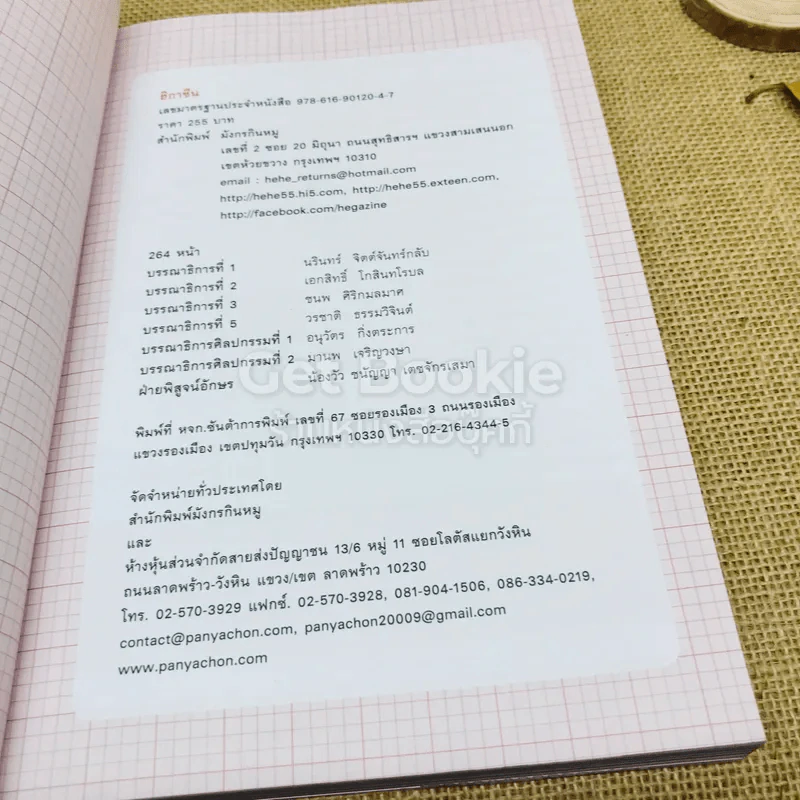 ฮิกาซีน
เลขมาตรฐานประจำหนังสือ 978-616-90120-4-7
ราคา 255 บาท
สำนักพิมพ์ มังกรกินหมู
เลขที่ 2 ซอย 20 มิถุนา ถนนสุทธิสารฯ แขวงสามเสนนอก
เขตห้วยขวาง กรุงเทพฯ 10310
email : hehe_returns@hotmail.com
http://hehe55.hi5.com, http://hehe55.exteen.com,
http://facebook.com/hegazine
264 หน้า
บรรณาธิการที่ 1 นรินทร์ จิตต์จันทร์กลับ
บรรณาธิการที่ 2 เอกสิทธิ์ โกสินทโรบล
บรรณาธิการที่ 3 ชนพ ศิริกมลมาศ
บรรณาธิการที่ 5 วรชาติ ธรรมวิจินต์
บรรณาธิการศิลปกรรมที่ 1 อนุวัตร กิ่งตระการ
บรรณาธิการศิลปกรรมที่ 2 มานพ เจริญวงษา
ฝ่ายพิสูจน์อักษร น้องวัว ชนัญญา เตชจักรเสมา
Get Bookie
ร้านหนังสือบุ๊คกี้
พิมพ์ที่ หจก.ซันต้าการพิมพ์ เลขที่ 67 ซอยรองเมือง 3 ถนนรองเมือง
แขวงรองเมือง เขตปทุมวัน กรุงเทพฯ 10330 โทร. 02-216-4344-5
จัดจำหน่ายทั่วประเทศโดย
สำนักพิมพ์มังกรกินหมู
และ
ห้างหุ้นส่วนจำกัดสายส่งปัญญาชน 13/6 หมู่ 11 ซอยโลตัสแยกวังหิน
ถนนลาดพร้าว-วังหิน แขวง/เขต ลาดพร้าว 10230
โทร. 02-570-3929 แฟกซ์. 02-570-3928, 081-904-1506, 086-334-0219,
contact@panyachon.com, panyachon20009@gmail.com
www.panyachon.com